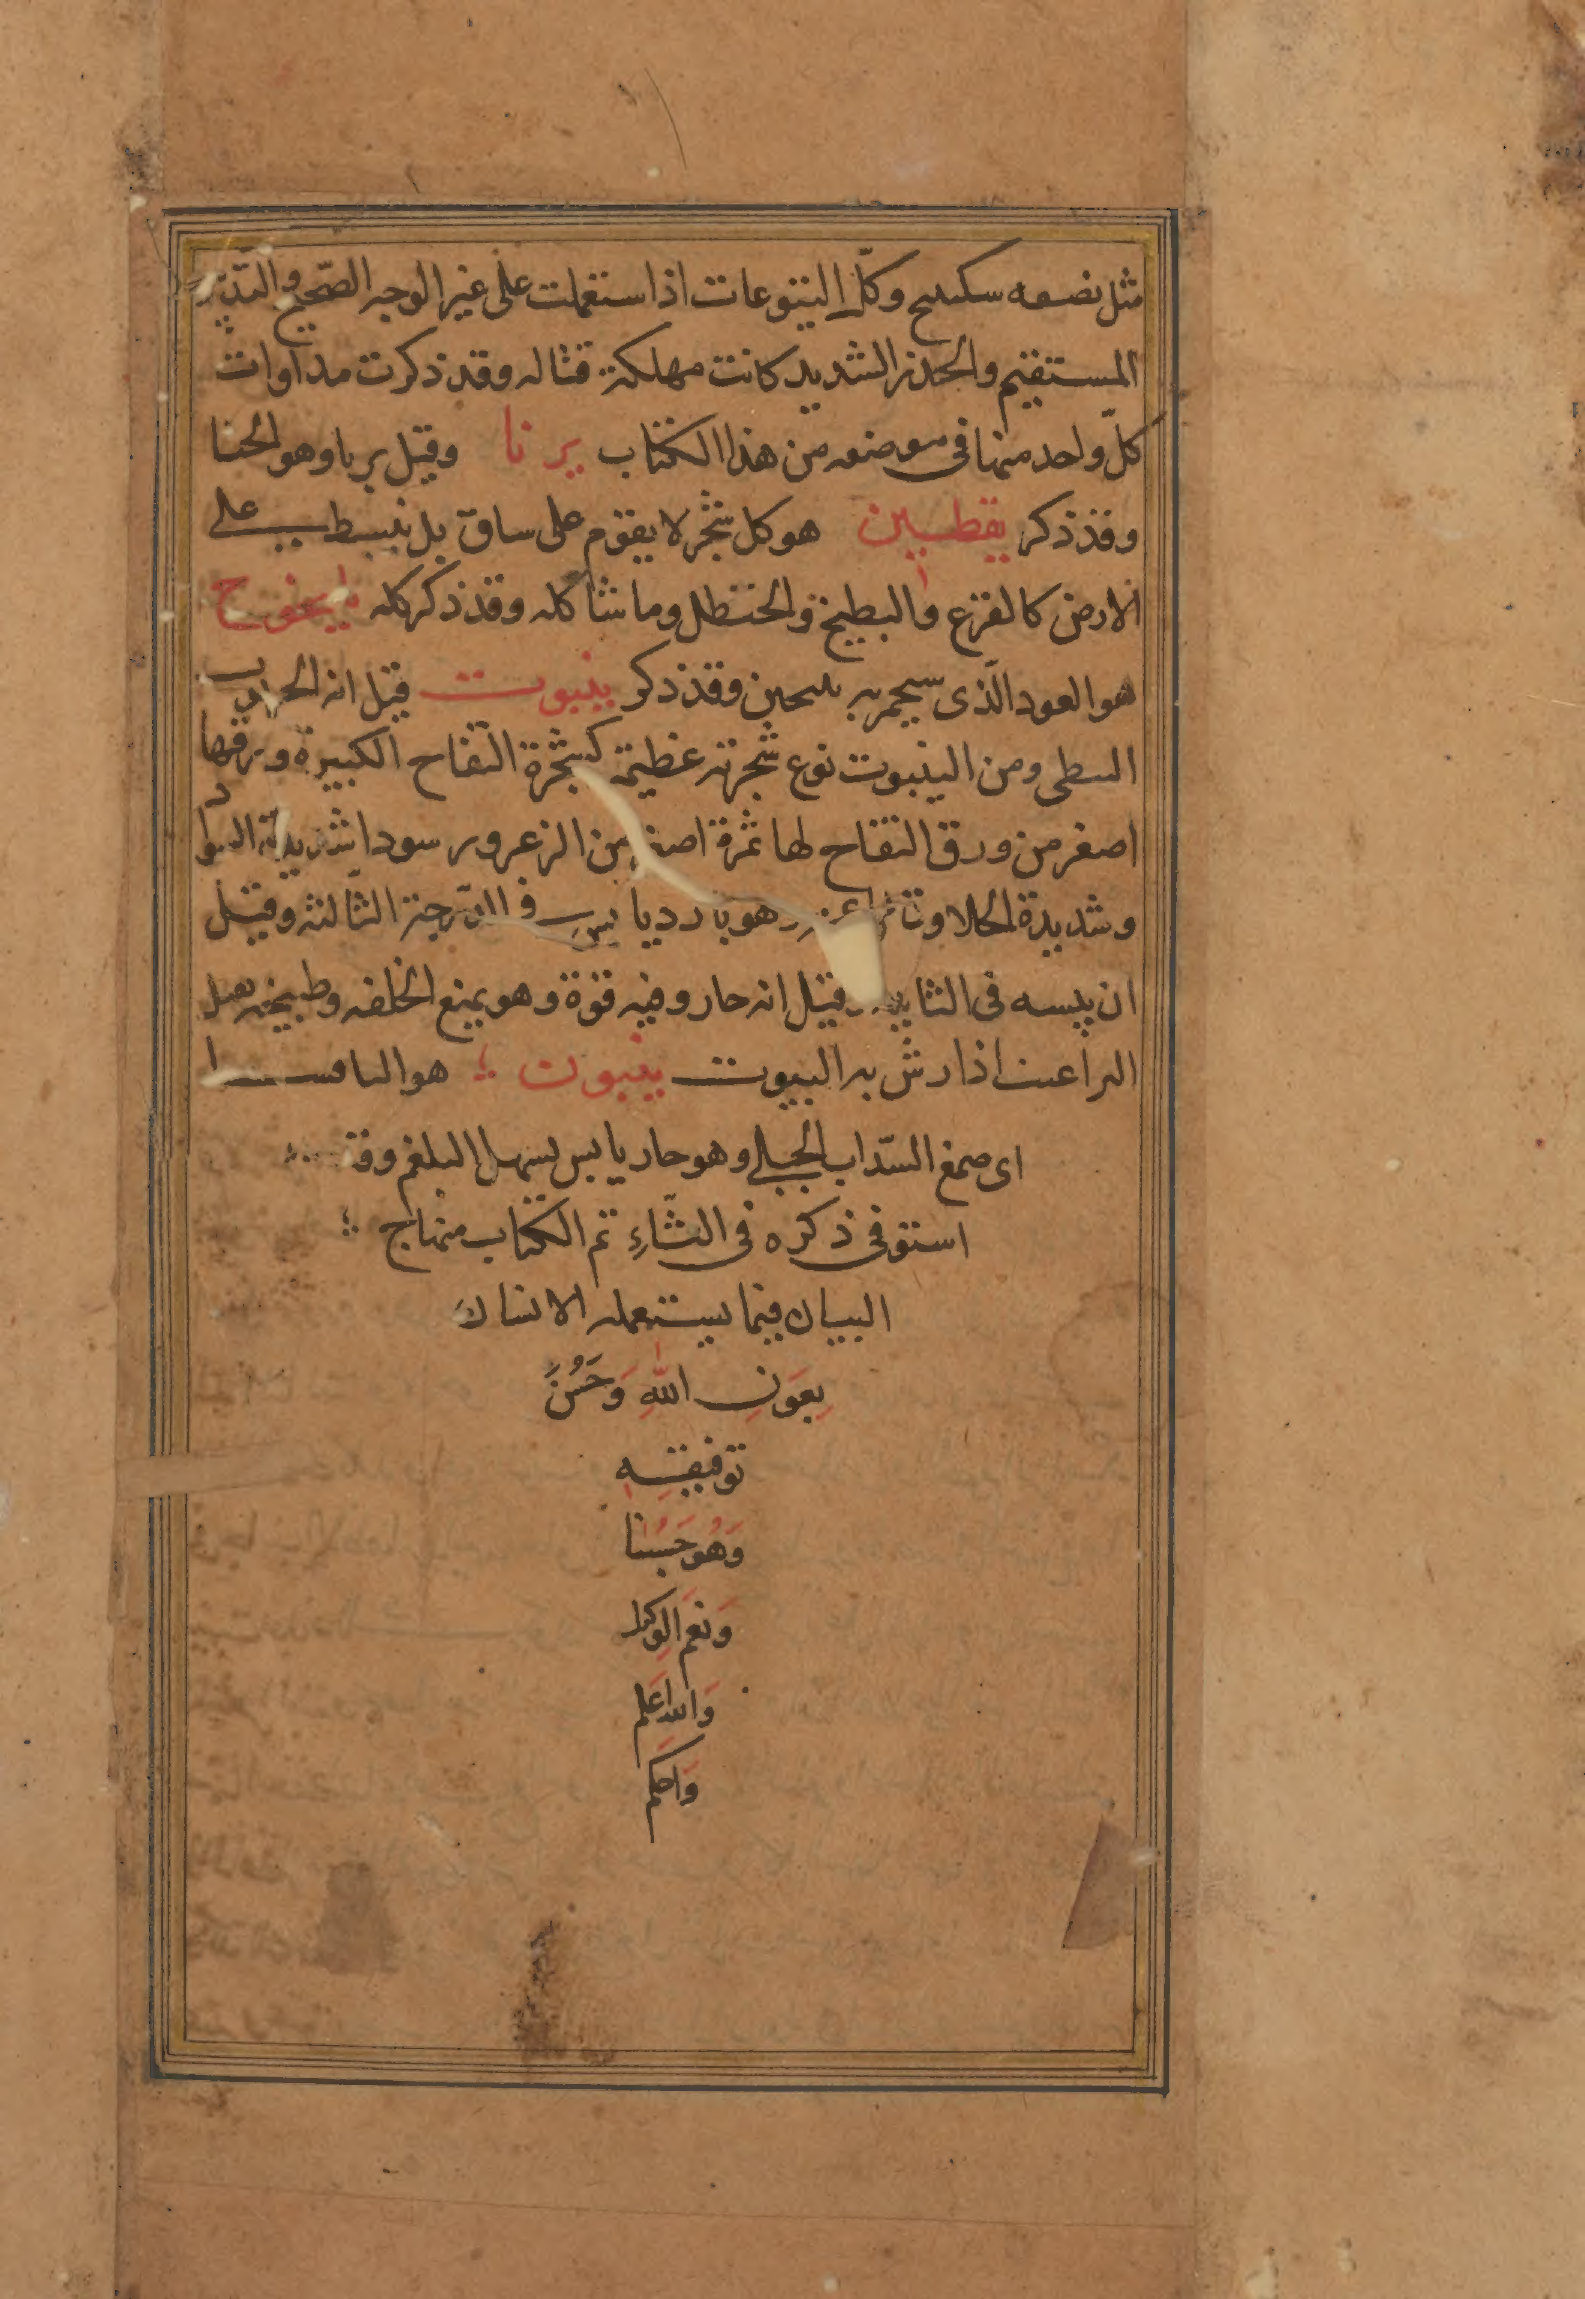 مثل نصفه سكبينج وكلّ اليتوعات اذا ستعملت على غير الوجه الصّحيح والتدبير
المستقيم والحذر الشديد كانت مهلكة قتاله وقد ذكرت مداوات
كلّ واحد منها في موضعه من هذا الكتاب يرنا وقيل يرنا وهو الحنا
وقد ذكر يقطين هو كل شجر لا يقوم على ساق بل ينبسط على
الارض كالقرع والبطيخ والحنظل وما شاكله وقد ذكر كله
هو العود الّذى وقد ذكر ينبوت قيل انه
النبطى ومن الينبوت نوع شجرته عظيمة كشجرة التفاح الكبيرة ورقها
اصغر من ورق التفاح لها ثمرة اصغر من الزعرور سودا شديدة السواد
وشديدة الحلاوة وهو بارد يابس في الدّرجة الثّالثه وقيل
ان يبسه في الثانيه وقيل انه حار وفيه قوة وهو يمنع الخلفه وطبيخه يقتل
البراغيث اذا رش به البيوت ينبوت هو التافسيا
اى صمغ السّداب الجبلى وهو حار يابس يسهل البلغم وقد
استوفى ذكره في الثّاءِ تم الكتاب منهاج
البيان فيما يستعمله الانسان
بِعَونِ اللهِ وَحُسْنِ
تَوفيقِهِ
وَهُوَ حَسْبُنا
وَنعمَ الوكيل
وَالله اَعلم
وَاحكم